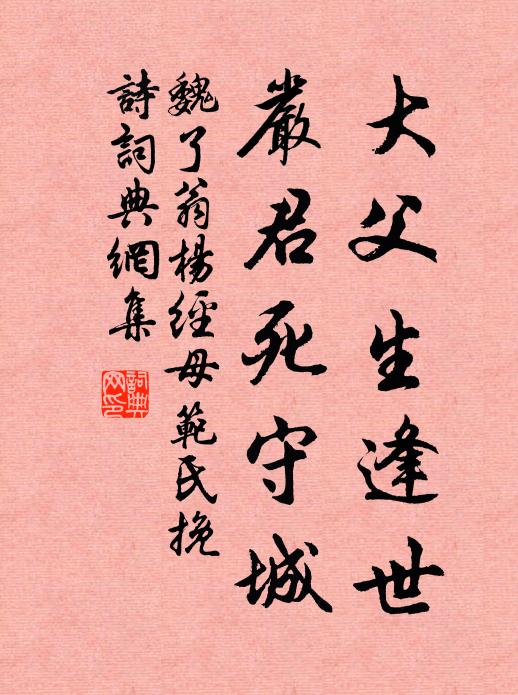 大父生逢世
嚴君死守城
魏了翁楊經母範氏挽
詩詞典網集
詞典網印